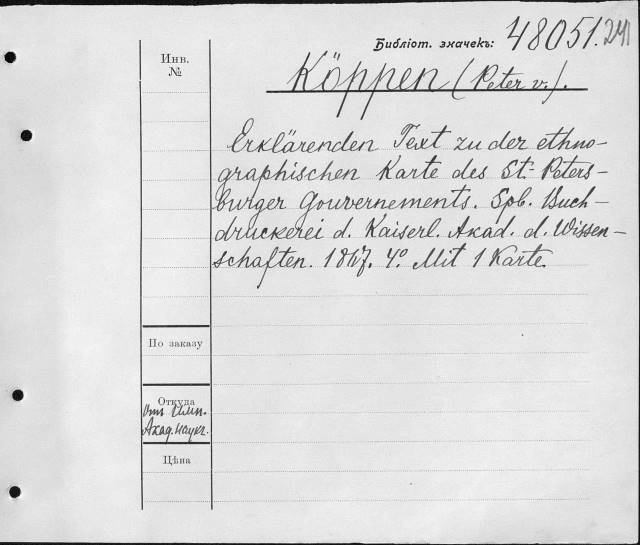 Библіот. значекъ: 48051. 241
Инв.
№
Köppen (Peter v.).
Erklärenden Text zu der ethno-
graphischen Karte des St. Peters-
burger Gouvernements. Spb. Buch-
druckerei d. Kaiserl. Akad. d. Wissen-
schaften. 1847. 4° Mit 1 Karte.
По заказу
Откуда
Отъ Имп.
Акад. наукъ.
Цѣна